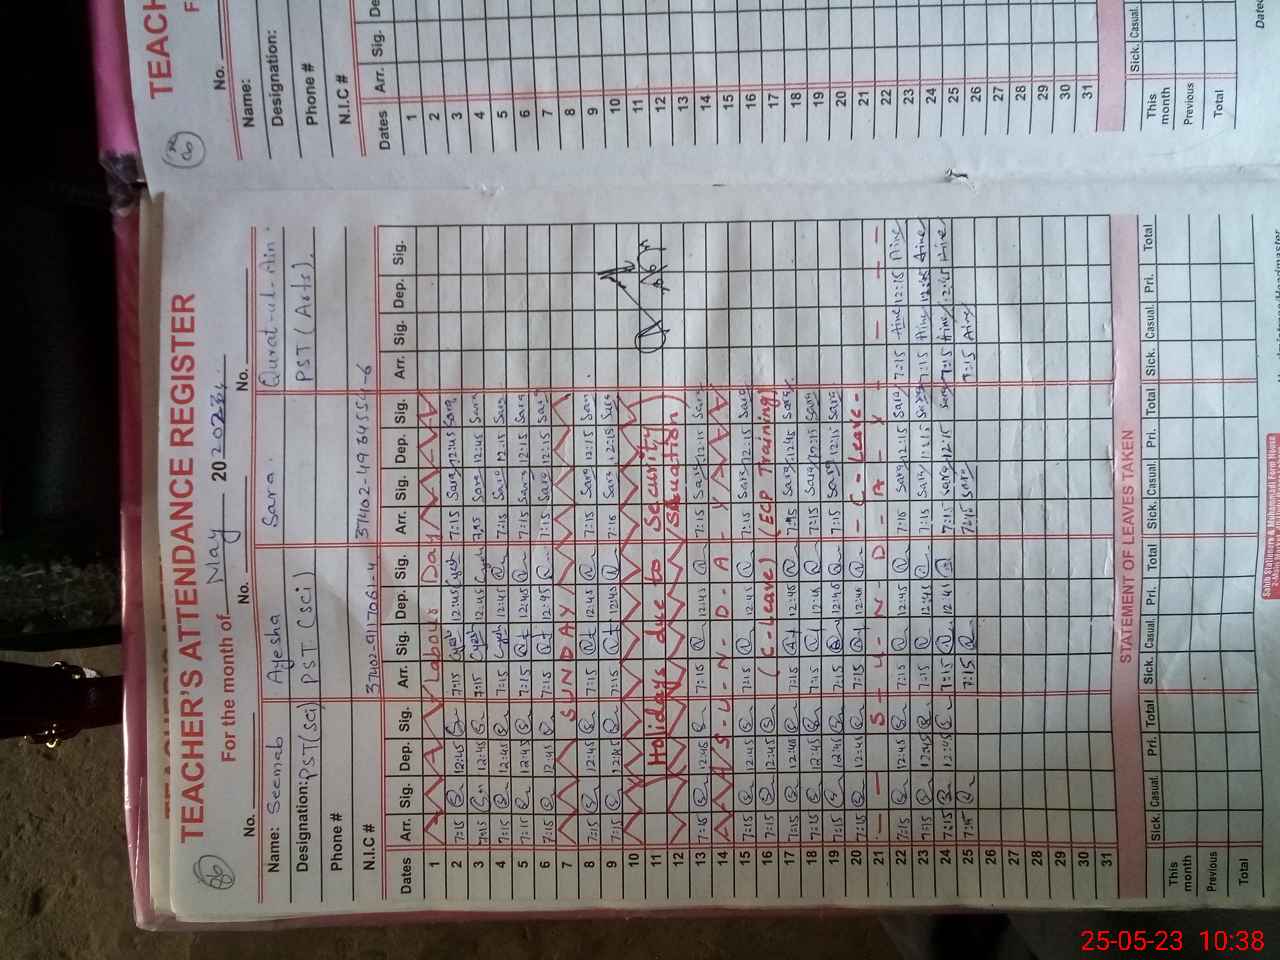 TEACHER'S ATTENDANCE REGISTER
For the month of May 2023
No. No. No.
Name: Seemab Ayesha Sara. Qurat-ul-Ain.
Designation: PST(Sci) PST (Sci) PST (Arts).
Phone #
N.I.C # 37402-9117061-4 37402-4934554-6
Dates Arr. Sig. Dep. Sig. Arr. Sig. Dep. Sig. Arr. Sig. Dep. Sig. Arr. Sig. Dep. Sig.
1 Labour Day
2 7:15 12:45 7:15 12:45 7:15 Sara 12:45 Sara
3 7:15 12:45 7:15 12:45 7:15 Sara 12:45 Sara
4 7:15 12:45 7:15 12:45 7:15 Sara 12:15 Sara
5 7:15 12:45 7:15 12:45 7:15 Sara 12:15 Sara
6 7:15 12:45 7:15 12:45 7:15 Sara 12:15 Sara
7 SUNDAY
8 7:15 12:45 7:15 12:45 7:15 Sara 12:15 Sara
9 7:15 12:45 7:15 12:45 7:15 Sara 12:15 Sara
10
11 (Holidays due to Security
12 Situation)
13 7:15 12:45 7:15 12:45 7:15 Sara 12:15 Sara
14 S-U-N-D-A-Y
15 7:15 12:45 7:15 12:45 7:15 Sara 12:15 Sara
16 7:15 12:45 (C-Leave) (ECP Training)
17 7:15 12:45 7:15 12:45 7:15 Sara 12:45 Sara
18 7:15 12:45 7:15 12:45 7:15 Sara 12:15 Sara
19 7:15 12:45 7:15 12:45 7:15 Sara 12:15 Sara
20 7:15 12:45 7:15 12:45 - C - Leave -
21 - - S - U - N - D - A - Y - - - -
22 7:15 12:45 7:15 12:45 7:15 Sara 12:15 Sara 7:15 Aine 12:15 Aine
23 7:15 12:45 7:15 12:45 7:15 Sara 12:15 Sara 7:15 Aine 12:45 Aine
24 7:15 12:45 7:15 12:45 7:15 Sara 12:15 Sara 7:15 Aine 12:45 Aine
25 7:15 7:15 7:15 Sara 7:15 Aine
26
27
28
29
30
31
STATEMENT OF LEAVES TAKEN
Sick. Casual. Pri. Total Sick. Casual. Pri. Total Sick. Casual. Pri. Total Sick. Casual. Pri. Total
This month
Previous
Total
Sabih Stationers & Muhammadi Form House
TEACH
No.
Name:
Designation:
Phone #
N.I.C #
Dates Arr. Sig.
1
2
3
4
5
6
7
8
9
10
11
12
13
14
15
16
17
18
19
20
21
22
23
24
25
26
27
28
29
30
31
Sick. Casual.
This month
Previous
Total
Dated
25-05-23 10:38